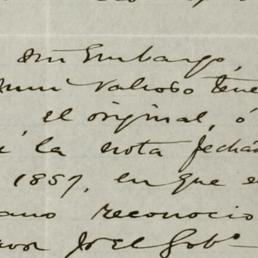 Sin Embargo,
muni valioso tene
el original, ó
la nota fechad
1857, en que e
ano reconocio
avor Jel Gobº